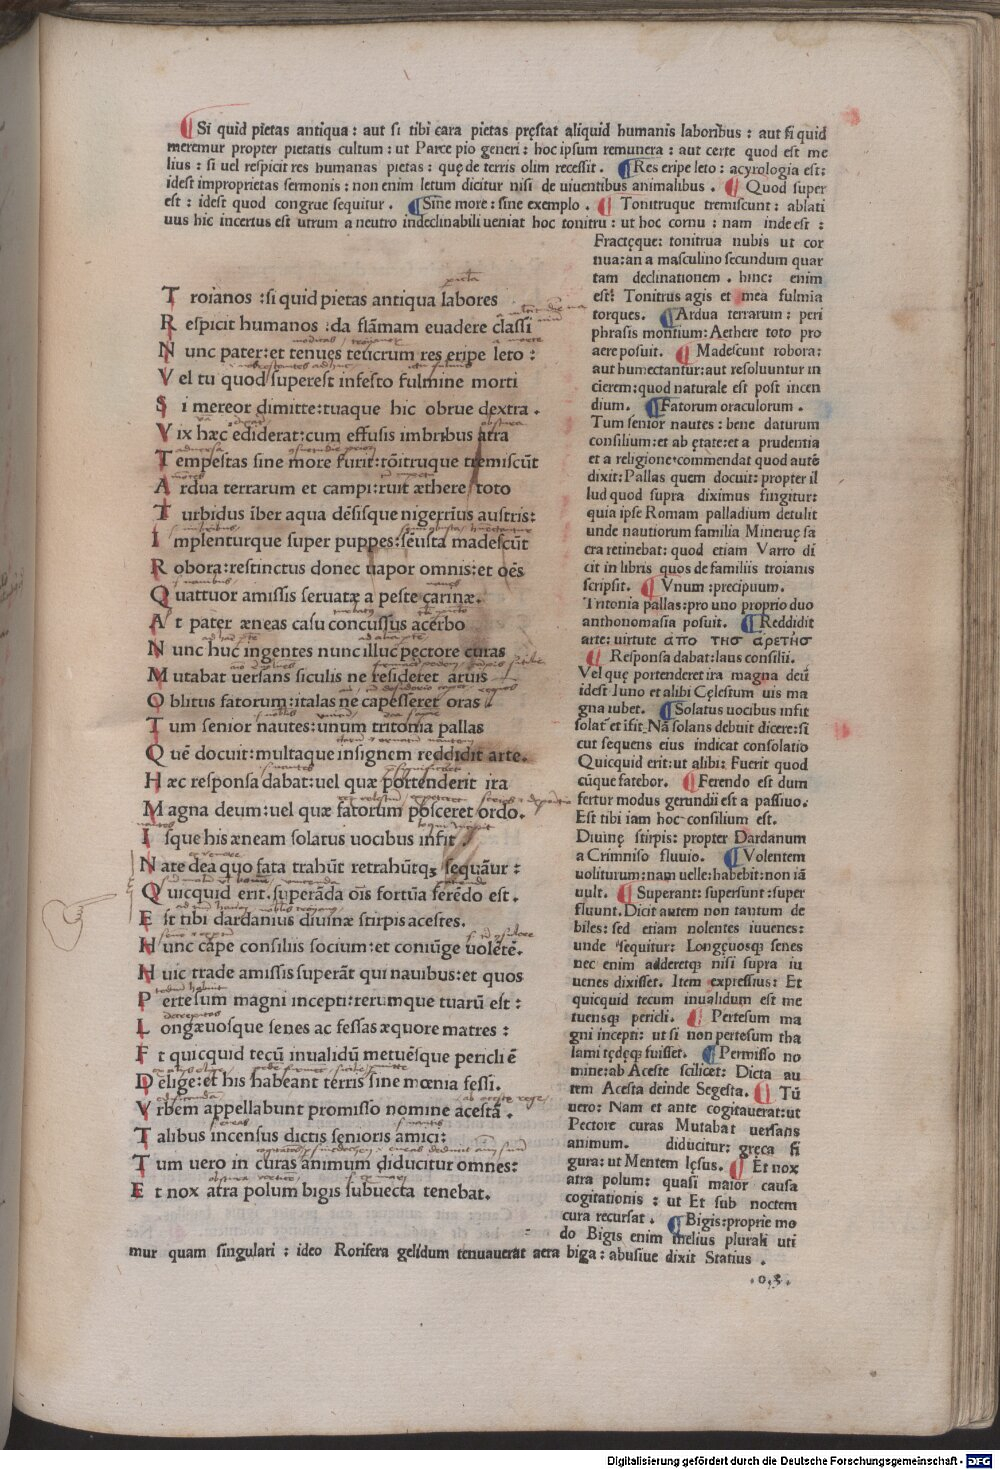 ¶ Si quid pietas antiqua : aut si tibi cara pietas pręstat aliquid humanis laboribus : aut si quid
meremur propter pietatis cultum : ut Parce pio generi : hoc ipsum remunera : aut certe quod est me
lius : si uel respicit res humanas pietas : quę de terris olim recessit . ¶ Res eripe leto : acyrologia est:
idest improprietas sermonis : non enim letum dicitur nisi de uiuentibus animalibus . ¶ Quod super
est : idest quod congrue sequitur . ¶ Sine more : sine exemplo . ¶ Tonitruque tremiscunt : ablati
uus hic incertus est utrum a neutro indeclinabili ueniat hoc tonitru : ut hoc cornu : nam inde est :
T roianos : si quid pietas antiqua labores
R espicit humanos : da flāmam euadere classi
N unc pater: et tenues teucrum res eripe leto :
V el tu quod superest infesto fulmine morti
S i mereor dimitte: tuaque hic obrue dextra .
V ix hæc ediderat: cum effusis imbribus atra
T empestas sine more furit: tōitruque tremiscūt
A rdua terrarum et campi: ruit æthere toto
T urbidus iber aqua dēsisque nigerrius austris:
I mplenturque super puppes: sēusta madescūt
R obora: restinctus donec uapor omnis: et oēs
Q uattuor amissis seruatæ a peste carinæ.
A t pater æneas casu concussus acerbo
N unc huc ingentes nunc illuc pectore curas
M utabat uersans siculis ne resideret aruis
O blitus fatorum: italas ne capesseret oras
T um senior nautes: unum tritonia pallas
Q uē docuit: multaque insignem reddidit arte.
H æc responsa dabat: uel quæ portenderit ira
M agna deum: uel quæ fatorum posceret ordo.
I sque his æneam solatus uocibus infit
N ate dea quo fata trahūt retrahūtqꝫ sequāur :
Q uicquid erit. superāda oīs fortūa ferēdo est .
E st tibi dardanius diuinæ stirpis acestes.
H unc cape consiliis socium: et coniūge uolētē.
H uic trade amissis superāt qui nauibus: et quos
P ertesum magni incepti: rerumque tuarū est :
L ongæuosque senes ac fessas æquore matres :
F t quicquid tecū inualidū metuēsque pericli ē
D elige: et his habeant terris sine mœnia fessi.
V rbem appellabunt promisso nomine acestā .
T alibus incensus dictis senioris amici:
T um uero in curas animum diducitur omnes:
E t nox atra polum bigis subuecta tenebat.
Fractęque: tonitrua nubis ut cor
nua: an a masculino secundum quar
tam declinationem . hinc: enim
est: Tonitrus agis et mea fulmia
torques. ¶ Ardua terrarum : peri
phrasis montium: Aethere toto pro
aere posuit. ¶ Madescunt robora:
aut humectantur: aut resoluuntur in
cierem: quod naturale est post incen
dium. ¶ Fatorum oraculorum .
Tum senior nautes : bene daturum
consilium: et ab ętate: et a prudentia
et a religione commendat quod autē
dixit: Pallas quem docuit: propter il
lud quod supra diximus fingitur:
quia ipse Romam palladium detulit
unde nautiorum familia Mineruę sa
cra retinebat: quod etiam Varro di
cit in libris quos de familiis troianis
scripsit. ¶ Vnum : precipuum.
Tritonia pallas: pro uno proprio duo
anthonomasia posuit. ¶ Reddidit
arte: uirtute ἀπο τησ ἀρετῆσ
¶ Responsa dabat: laus consilii.
Vel quę portenderet ira magna deū
idest Iuno et alibi Cęlestum uis ma
gna iubet. ¶ Solatus uocibus infit
solaẗ et ifit Nā solans debuit dicere: si
cut sequens eius indicat consolatio
Quicquid erit: ut alibi: Fuerit quod
cūque fatebor. ¶ Ferendo est dum
fertur modus gerundii est a passiuo.
Est tibi iam hoc consilium est.
Diuinę stirpis: propter Dardanum
a Crimniso fluuio. ¶ Volentem
uoliturum: nam uelle: habebit: non iā
uult. ¶ Superant: supersunt: super
fluunt. Dicit autem non tantum de
biles: sed etiam nolentes iuuenes:
unde sequitur: Longęuosqꝫ senes
nec enim adderetqꝫ nisi supra iu
uenes dixisset. Item expressius: Et
quicquid tecum inualidum est me
tuensqꝫ pericli. ¶ Pertesum ma
gni incepti: ut si non pertesum tha
lami tędęqꝫ fuisset. ¶ Permisso no
mine: ab Aceste scilicet: Dicta au
tem Acesta deinde Segesta. ¶ Tū
uero: Nam et ante cogitauerat: ut
Pectore curas Mutabat uersans
animum. diducitur: gręca fi
gura: ut Mentem lęsus. ¶ Et nox
atra polum: quasi maior causa
cogitationis : ut Et sub noctem
cura recursat . ¶ Bigis: proprie mo
do Bigis enim melius plurali uti
mur quam singulari : ideo Rorifera gelidum tenuauerat aera biga : abusiue dixit Statius .
.o.3.
Digitalisierung gefördert durch die Deutsche Forschungsgemeinschaft - DFG